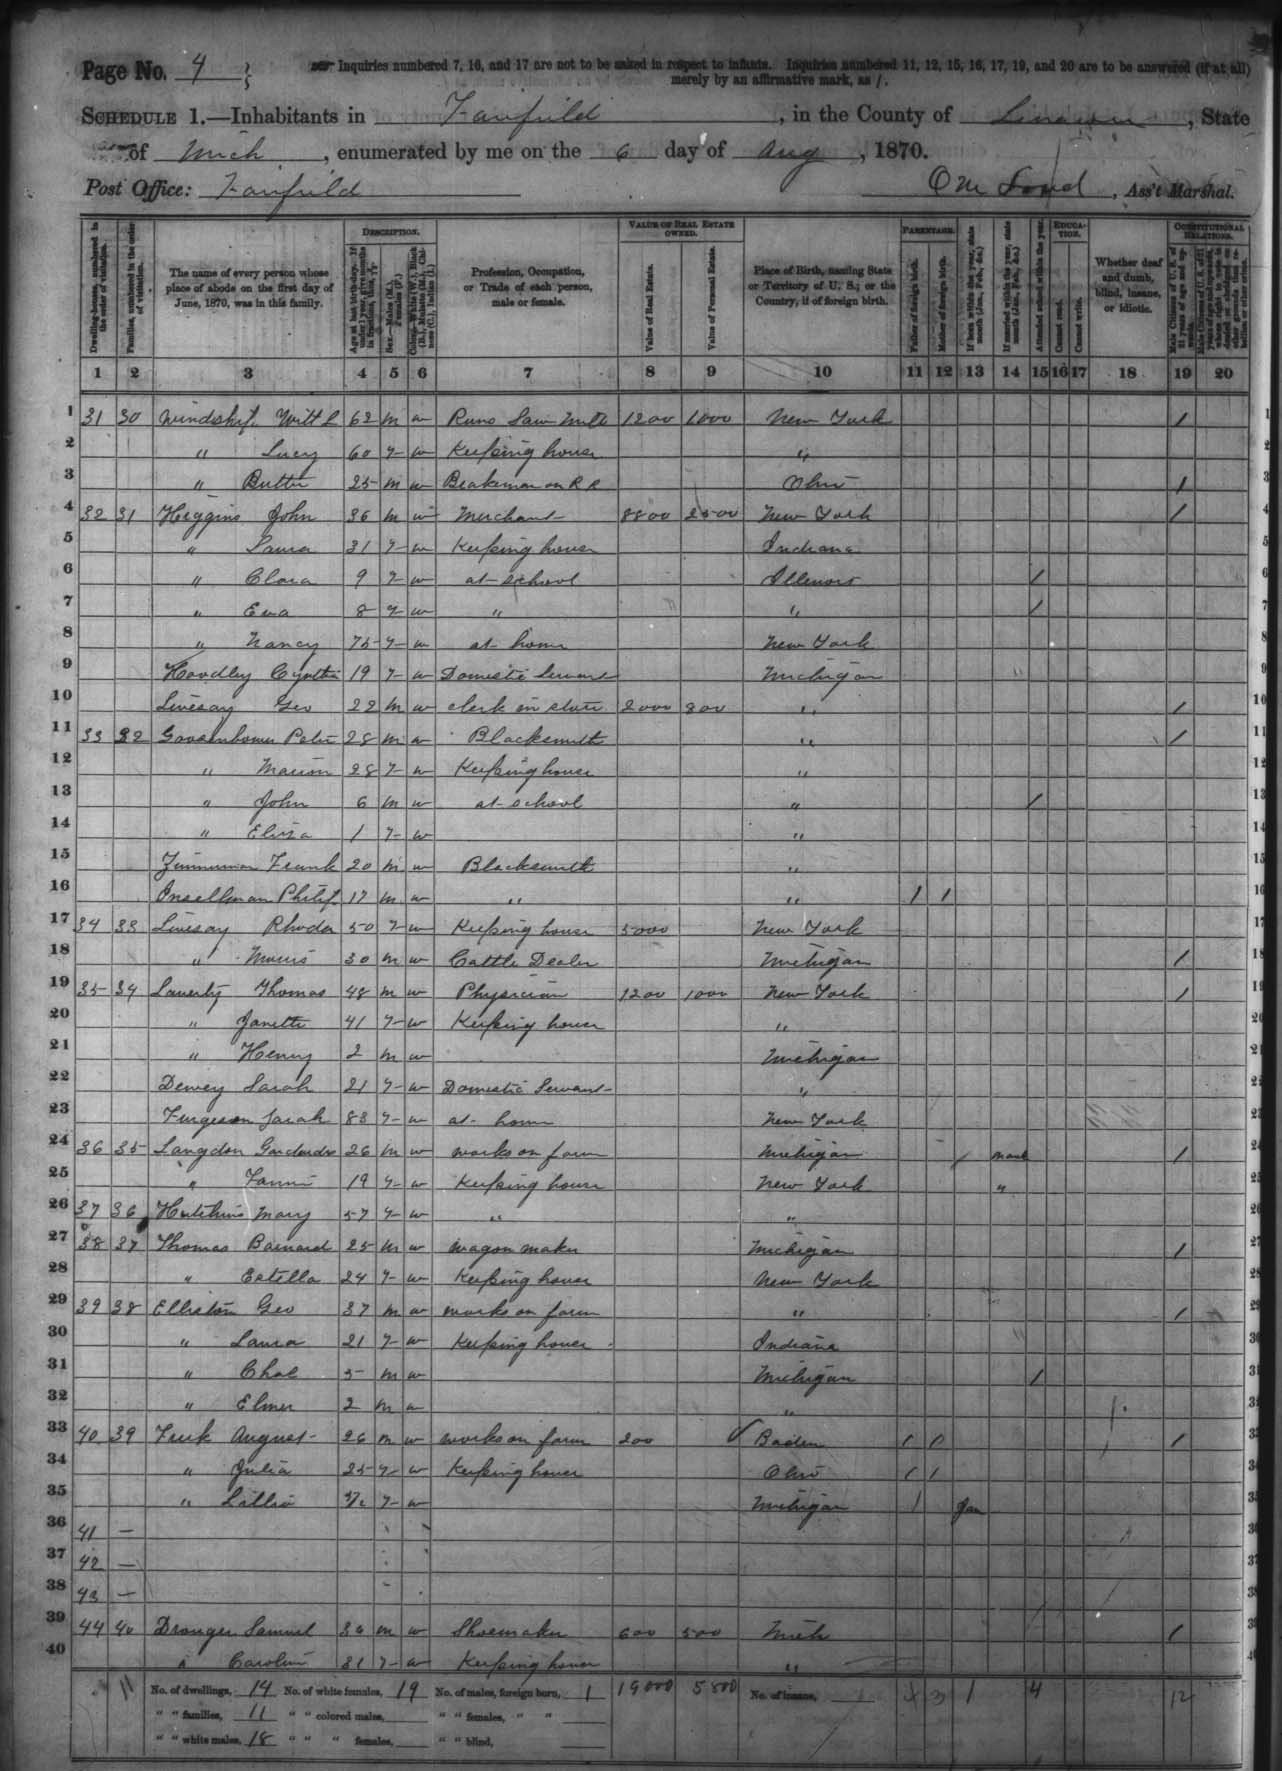 Page No. 4 Inquiries numbered 7, 16, and 17 are not to be asked in respect to infants. Inquiries numbered 11, 12, 15, 16, 17, 19, and 20 are to be answered (if at all)
merely by an affirmative mark, as /.
SCHEDULE 1.—Inhabitants in Fairfield, in the County of Lenawee, State
of Mich, enumerated by me on the 6 day of Aug, 1870.
Post Office: Fairfield , Ass't Marshal.
DESCRIPTION. VALUE OF REAL ESTATE OWNED. PARENTAGE. EDUCATION. CONSTITUTIONAL RELATIONS.
Dwelling-houses, numbered in the order of visitation. Families, numbered in the order of visitation. The name of every person whose place of abode on the first day of June, 1870, was in this family. Profession, Occupation, or Trade of each person, male or female. Value of Real Estate. Value of Personal Estate. Place of Birth, naming State or Territory of U. S.; or the Country, if of foreign birth. Father of foreign birth. Mother of foreign birth. If born within the year, state month (Jan., Feb., &c.) If married within the year, state month (Jan., Feb., &c.) Attended school within the year. Cannot read. Cannot write. Whether deaf and dumb, blind, insane, or idiotic.
1 2 3 4 5 6 7 8 9 10 11 12 13 14 15 16 17 18 19 20
1 31 30 Will L 62 m w Runs Saw Mill 1200 1000 New York /
2 " Lucy 60 F w Keeping house "
3 " 25 m w Brakeman on R R Ohio /
4 32 31 Higgins John 36 m w Merchant 8800 2500 New York /
5 " Laura 31 F w Keeping house Indiana
6 " Clara 9 F w at school Illinois /
7 " Eva 8 F w " " /
8 " Nancy 75 F w at home New York
9 Hoadley Cynthia 19 F w Domestic Servant Michigan
10 Livesay Geo 22 m w clerk in store 2000 800 " /
11 33 32 Peter 28 m w Blacksmith " /
12 " Marion 28 F w Keeping house "
13 " John 6 m w at school " /
14 " Eliza 1 F w "
15 Zimmerman Frank 20 m w Blacksmith "
16 Philip 17 m w " " / /
17 34 33 Livesay Rhoda 50 F w Keeping house 5000 New York
18 " Morris 30 m w Cattle Dealer Michigan /
19 35 34 Laverty Thomas 48 m w Physician 1200 1000 New York /
20 " Janette 41 F w Keeping house "
21 " Henry 2 m w Michigan
22 Dewey Sarah 21 F w Domestic Servant "
23 Furgeson Sarah 83 F w at home New York
24 36 35 Langdon 26 m w works on farm Michigan / /
25 " Fannie 19 F w Keeping house New York "
26 37 36 Hutchins Mary 57 F w " "
27 38 37 Thomas Barnard 25 m w Wagon maker Michigan /
28 " Estella 24 F w Keeping house New York
29 39 38 Elliston Geo 37 m w works on farm " /
30 " Laura 21 F w Keeping house Indiana
31 " Chas 5 m w Michigan /
32 " Elmer 2 m w "
33 40 39 August 26 m w works on farm 200 Baden / / /
34 " Julia 25 F w Keeping house Ohio / /
35 " Lillie F w Michigan / Jan
36 41 —
37 42 —
38 43 —
39 44 40 Samuel 36 m w Shoemaker 600 500 Mich /
40 " Caroline 31 F w Keeping house "
No. of dwellings, 14 No. of white females, 19 No. of males, foreign born, 1 19000 5800 No. of insane, 3 1 4 12
" " families, 11 " " colored males, " " females, " "
" " white males, 18 " " " females, " " blind,